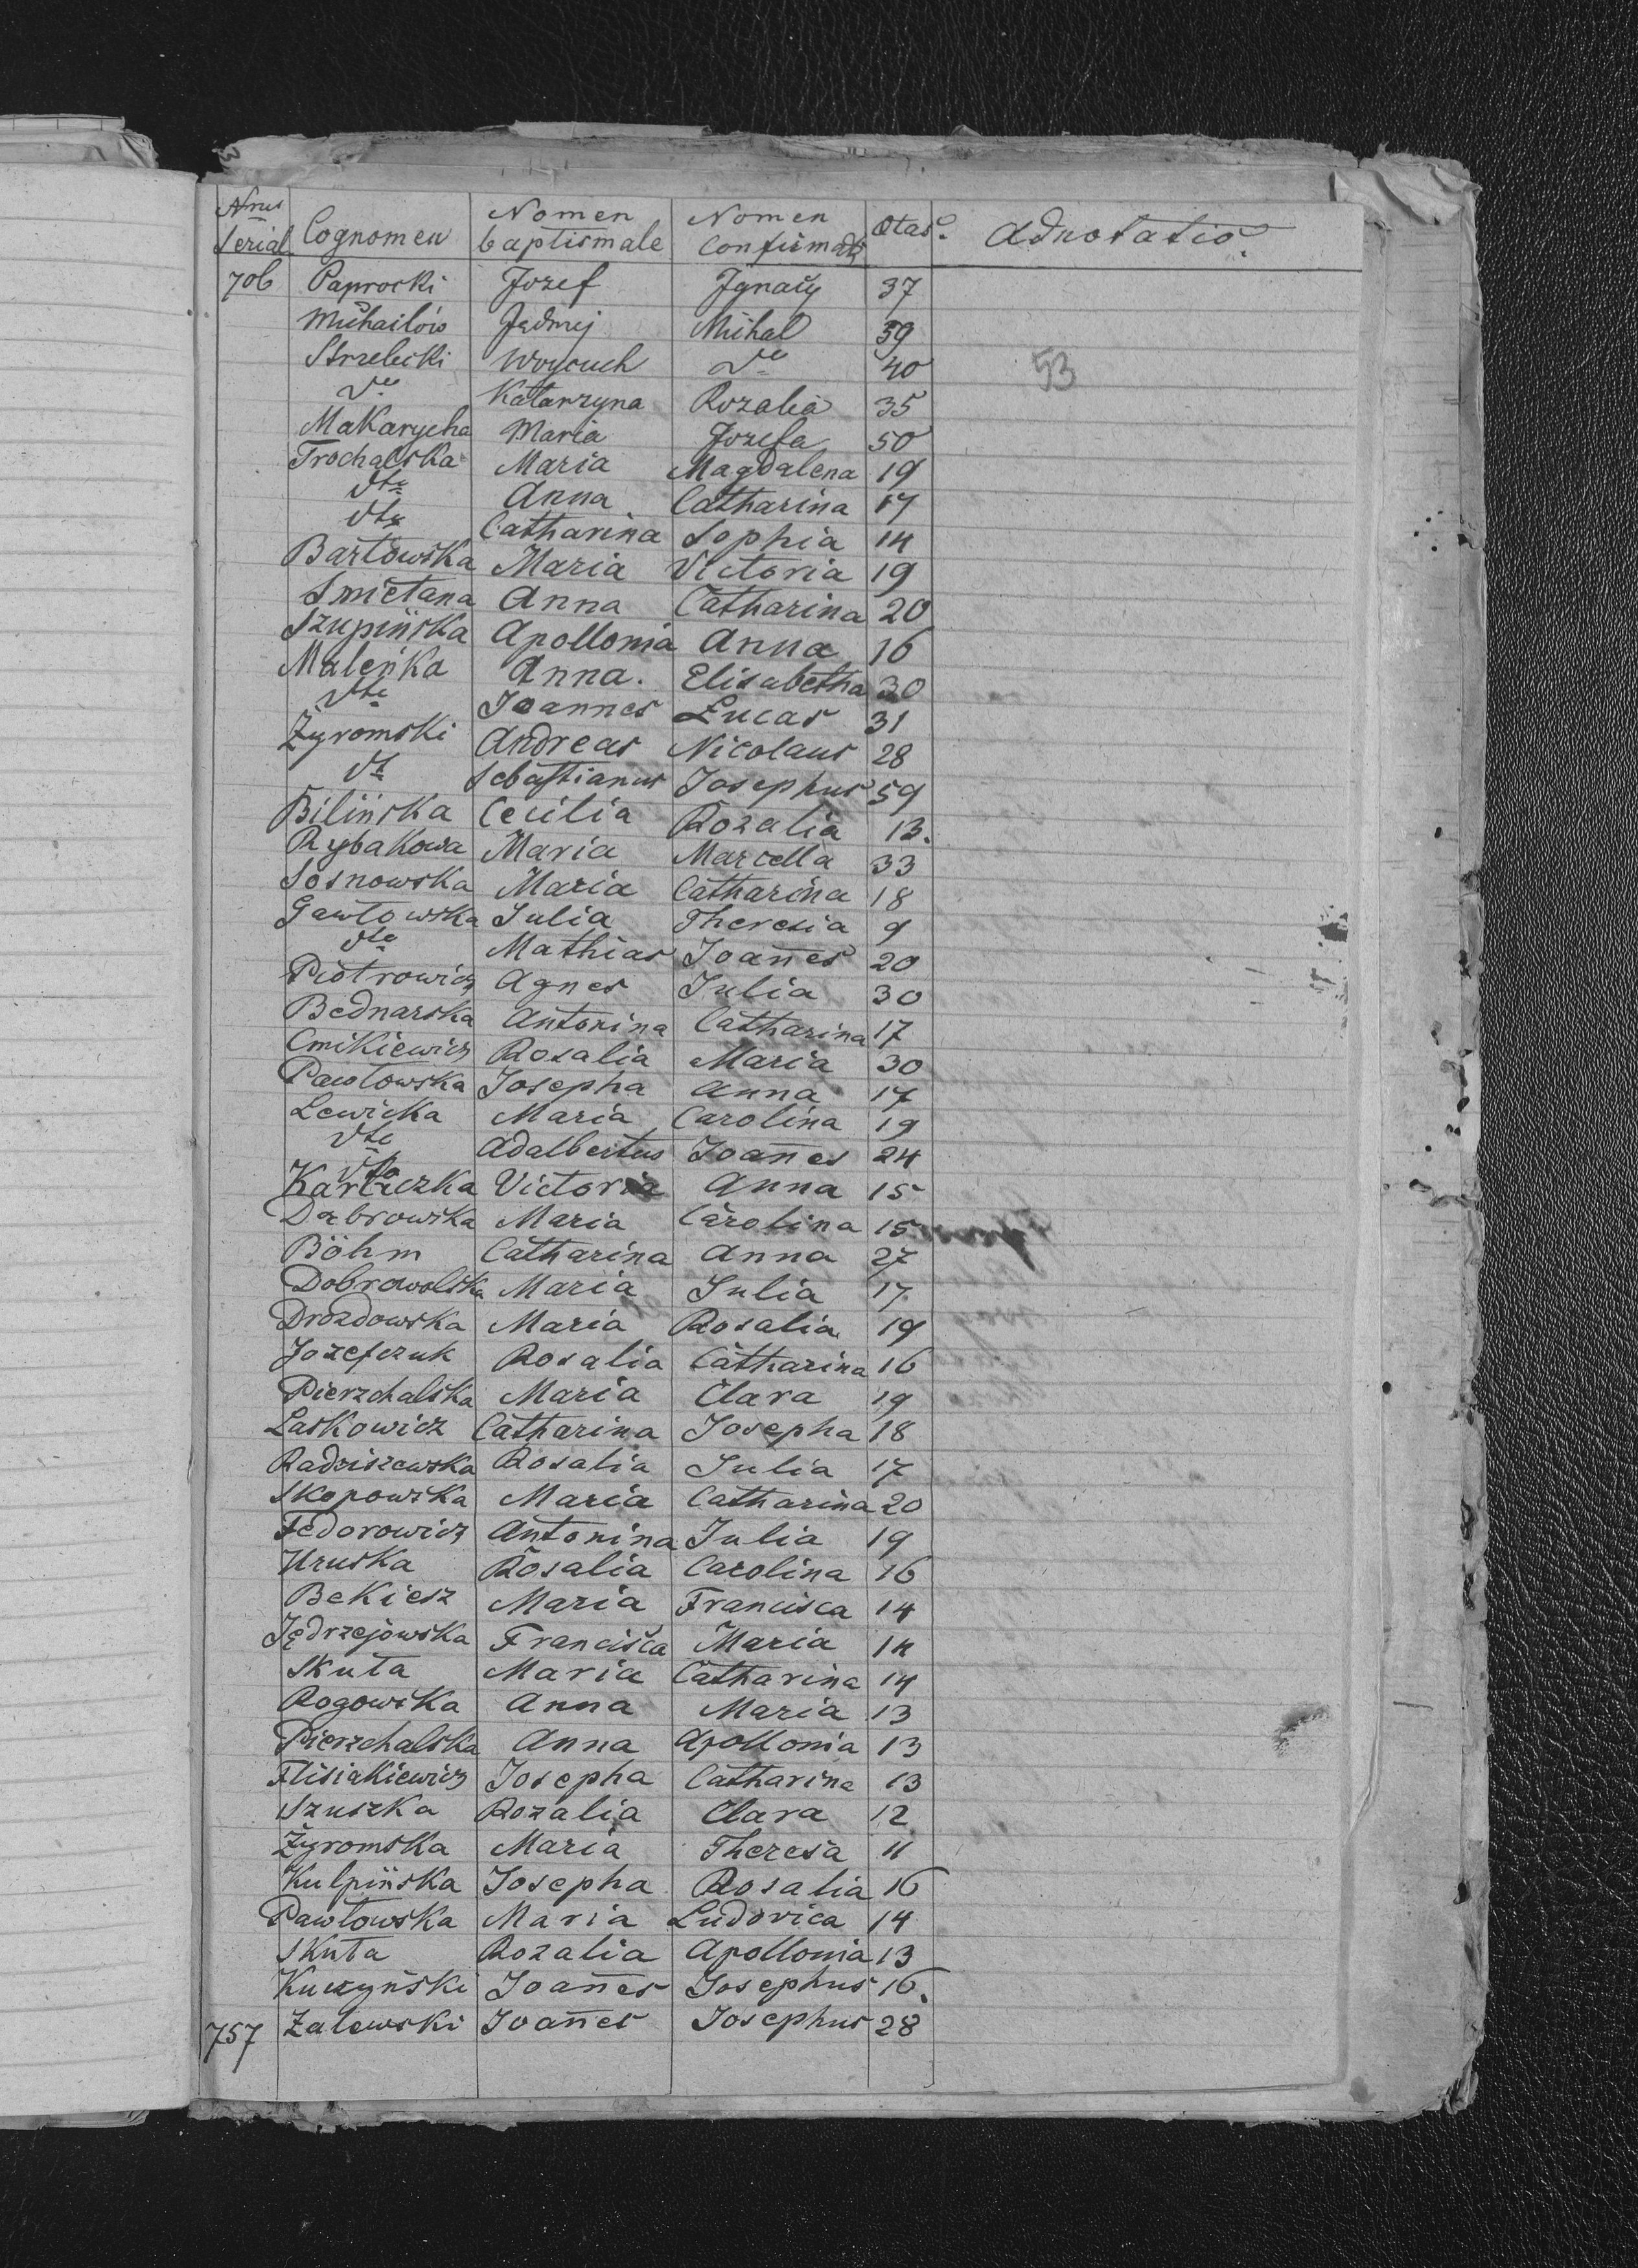 Nrus Serial. Cognomen Nomen baptismale Nomen Confirmatis Otas. Adnotatio.
706 Paprocki Jozef Jgnacy 37
Michailów Jędrzej Michal 39
Strzelecki Woyciech dto 40
53
dto Katarzyna Rozalia 35
Makarycha Maria Jozefa 50
Trochalska Maria Magdalena 19
dto Anna Catharina 17
dto Catharina Sophia 14
Bartowska Maria Victoria 19
Smietana Anna Catharina 20
Szupińska Apollonia Anna 16
Maleńka Anna. Elisabetha 30
dto Joannes Lucas 31
Żyromski Andreas Nicolaus 28
dto Sebastianus Josephus 59
Bilińska Cecilia Rozalia 13.
Rybakowa Maria Marcella 33
Sosnowska Maria Catharina 18
Gawłowska Julia Theresia 9
dto Mathias Joañes 20
Piotrowicz Agnes Julia 30
Bednarska Antonina Catharina 17
Cmikiewicz Rosalia Maria 30
Pawłowska Josepha Anna 17
Lewicka Maria Carolina 19
dto Adalbertus Joañes 24
Karliczka Victoria Anna 15
Dąbrowska Maria Carolina 15
Böhm Catharina Anna 27
Dobrowolska Maria Julia 17
Drozdowska Maria Rosalia 19
Jozefczuk Rosalia Catharina 16
Pierzchalska Maria Clara 19
Laskowicz Catharina Josepha 18
Radziszewska Rosalia Julia 17
Skopowska Maria Catharina 20
Fedorowicz Antonina Julia 19
Uruska Rosalia Carolina 16
Bekiesz Maria Francisca 14
Jędrzejowska Francisca Maria 14
Skuta Maria Catharina 14
Rogowska Anna Maria 13
Pierzchalska Anna Apollonia 13
Flisiakiewicz Josepha Catharina 13
Szuszka Rozalia Clara 12
Żyromska Maria Theresa 11
Kulpińska Josepha Rosalia 16
Pawłowska Maria Ludovica 14
Skuta Rozalia Apollonia 13
Kuczyński Joañes Josephus 16.
757 Zalewski Joañes Josephus 28